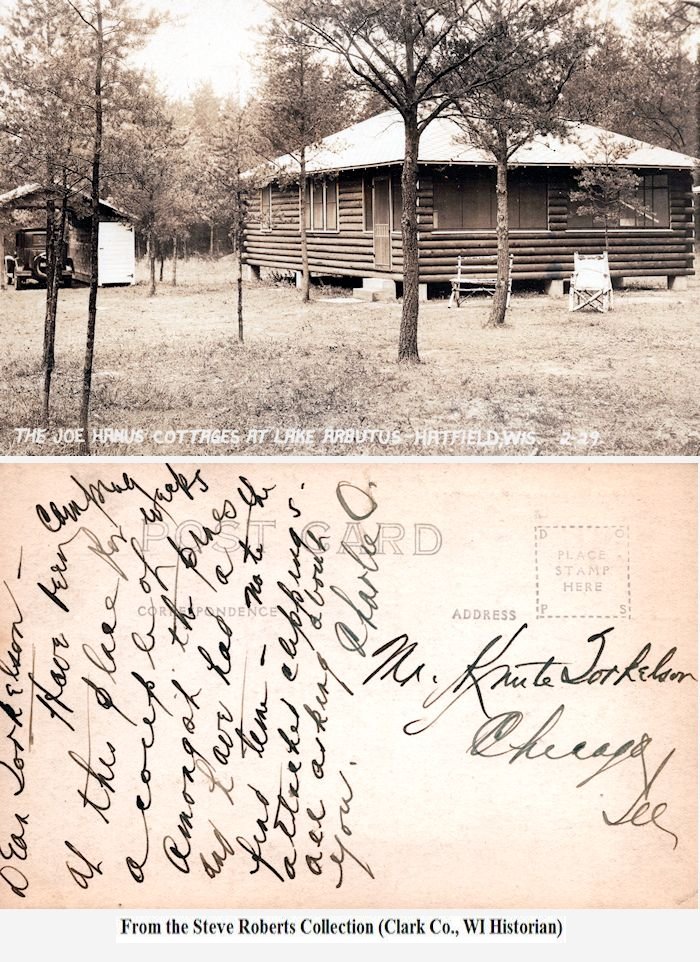 THE JOE HANUS COTTAGES AT LAKE ARBUTUS HATFIELD, WIS. 2-29
POST CARD
CORRESPONDENCE
ADDRESS
D O
PLACE
STAMP
HERE
P S
Dear Torkelson -
Have been camping
at this place for
a couple of weeks
amongst the pines
and have had a
fine time - note the
attached clippings -
all asking about
you.
Charlie O.
Mr. Knute Torkelson
Chicago
Ill
From the Steve Roberts Collection (Clark Co., WI Historian)